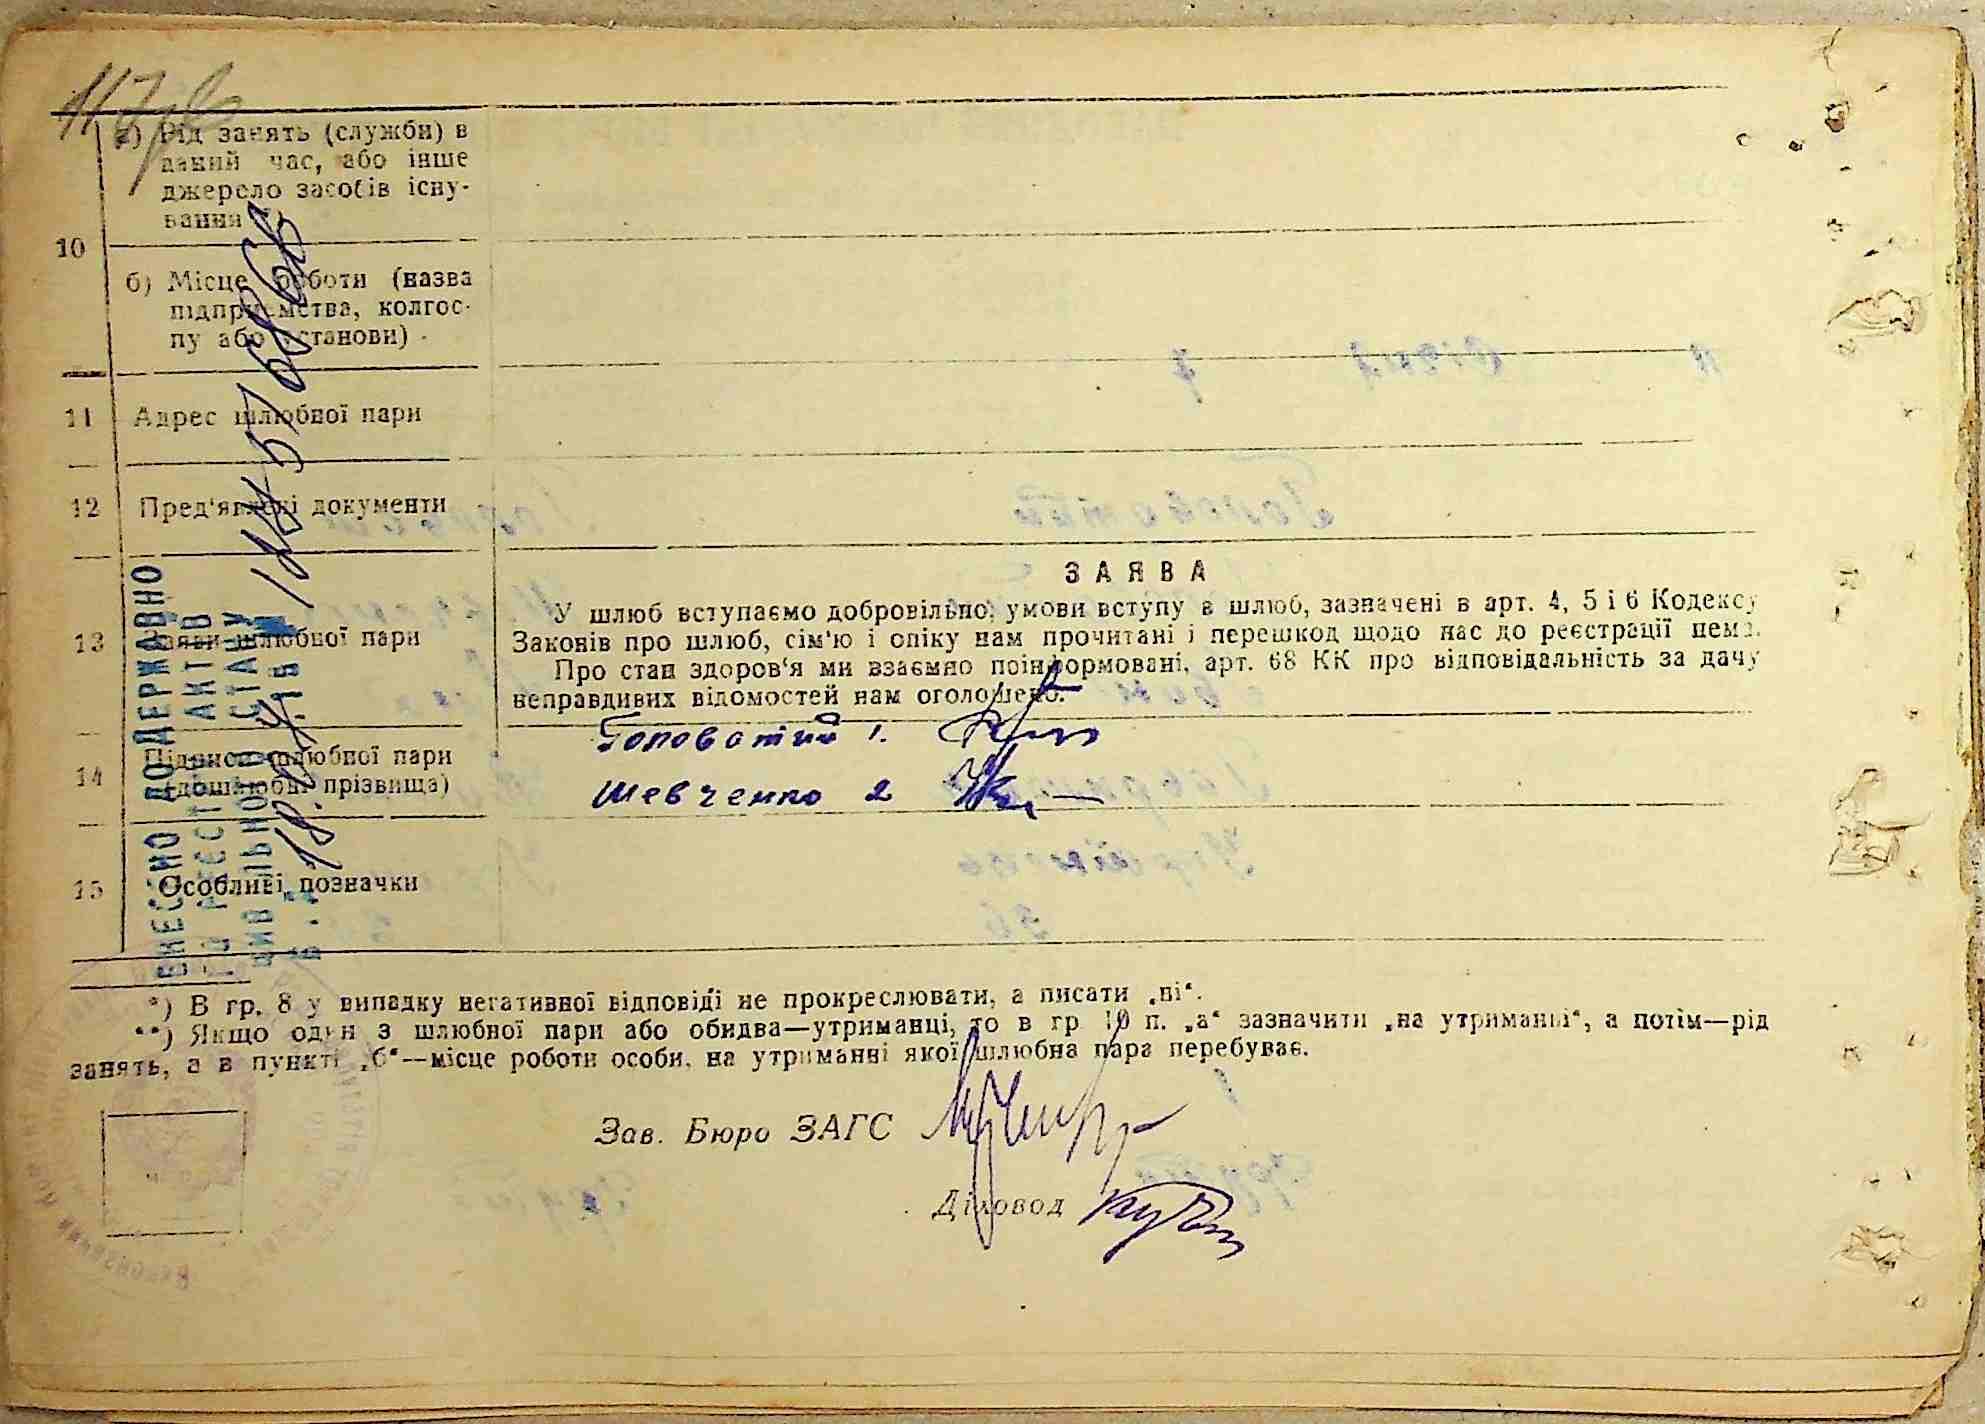 117 зв
а) Рід занять (служби) в
даний час, або інше
джерело засобів існу-
вання
10
б) Місце роботи (назва
підприємства, колгос-
пу або установи)
11 Адрес шлюбної пари
12 Пред'явлені документи
ЗАЯВА
У шлюб вступаємо добровільно; умови вступу в шлюб, зазначені в арт. 4, 5 і 6 Кодексу
13 Заяви шлюбної пари
Законів про шлюб, сім'ю і опіку нам прочитані і перешкод щодо нас до реєстрації нема.
Про стан здоров'я ми взаємно поінформовані, арт. 68 КК про відповідальність за дачу
неправдивих відомостей нам оголошено.
14 Підписи шлюбної пари
(дошлюбні прізвища)
Головатий 1.
Шевченко 2
15 Особливі позначки
ВНЕСЕНО ДО ДЕРЖАВНО
ГО РЕЄСТРУ АКТІВ
ЦИВІЛЬНОГО СТАНУ
*) В гр. 8 у випадку негативної відповіді не прокреслювати, а писати „ні“.
**) Якщо один з шлюбної пари або обидва—утриманці, то в гр 10 п. „а“ зазначити „на утриманні“, а потім—рід
занять, а в пункті „б“—місце роботи особи, на утриманні якої шлюбна пара перебуває.
Зав. Бюро ЗАГС
Діловод